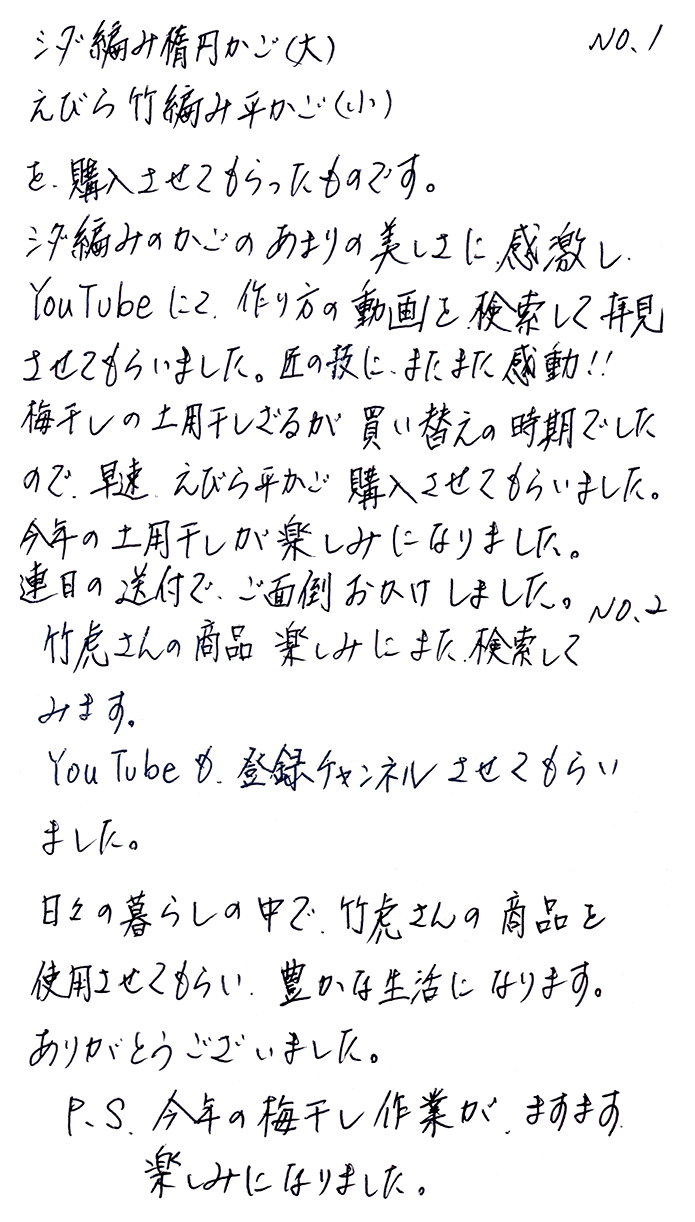 NO.1
シダ編み楕円かご(大)
えびら竹編み平かご(小)
を、購入させてもらったものです。
シダ編みのかごのあまりの美しさに、感激し、
YouTubeにて、作り方の動画を、検索して拝見
させてもらいました。匠の技に、またまた感動!!
梅干しの土用干しざるが買い替えの時期でした
ので、早速、えびら平かご購入させてもらいました。
今年の土用干しが楽しみになりました。
連日の送付で、ご面倒おかけしました。
NO.2
竹虎さんの商品楽しみにまた、検索して
みます。
YouTubeも、登録チャンネルさせてもらい
ました。
日々の暮らしの中で、竹虎さんの商品を
使用させてもらい、豊かな生活になります。
ありがとうございました。
P.S. 今年の梅干し作業が、ますます
楽しみになりました。